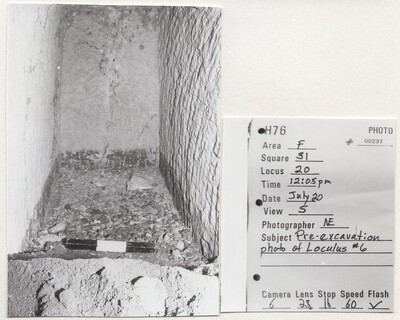 H76 PHOTO
# 00237
Area F
Square S1
Locus 20
Time 12:05pm
Date July 20
View S
Photographer NE
Subject Pre-excavation
photo of Loculus #6
Camera Lens Stop Speed Flash
6 28 16 60 ✓